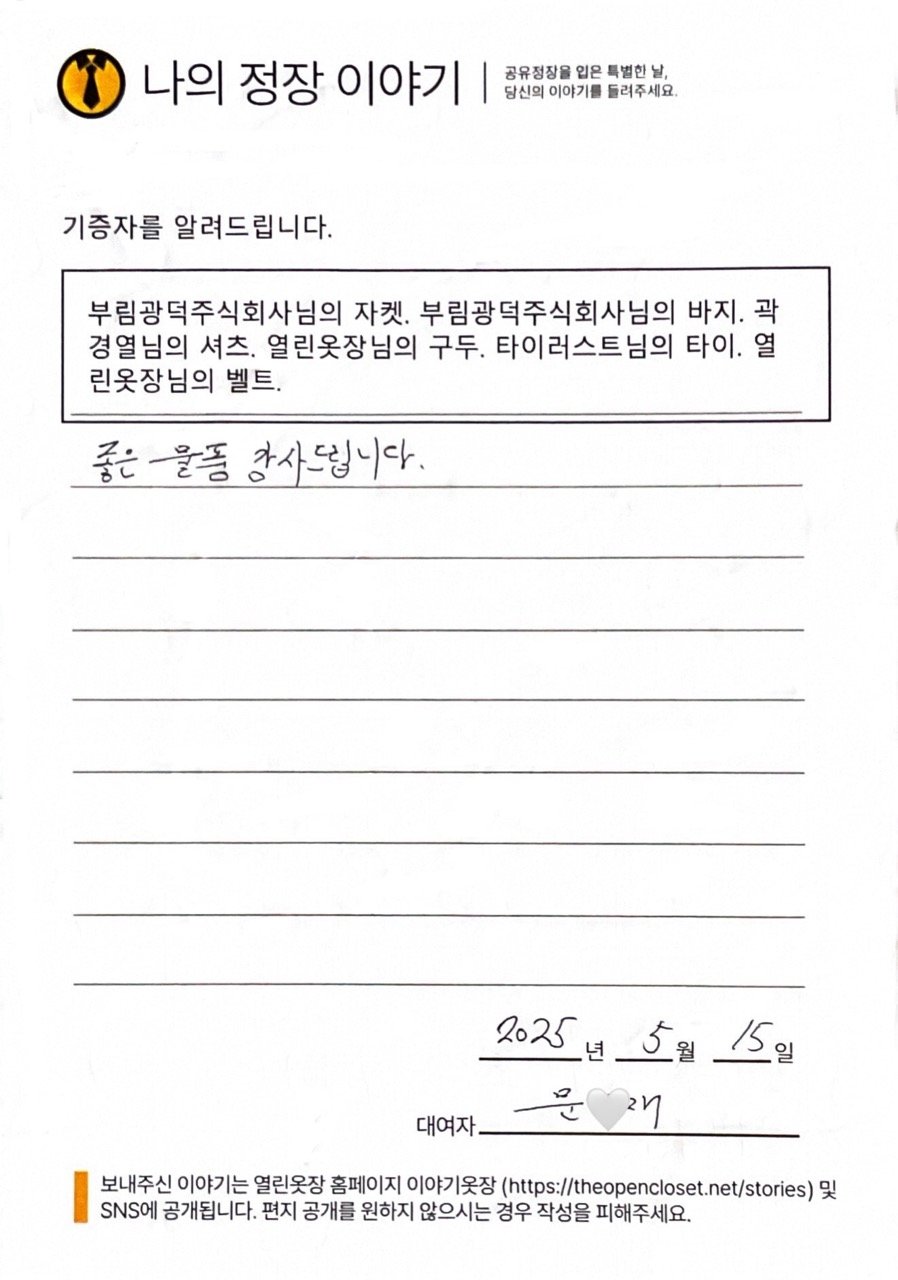 나의 정장 이야기
공유정장을 입은 특별한 날,
당신의 이야기를 들려주세요.
기증자를 알려드립니다.
부림광덕주식회사님의 자켓. 부림광덕주식회사님의 바지. 곽
경열님의 셔츠. 열린옷장님의 구두. 타이러스트님의 타이. 열
린옷장님의 벨트.
좋은 물품 감사드립니다.
2025년 5월 15일
대여자 문 래
보내주신 이야기는 열린옷장 홈페이지 이야기옷장 (https://theopencloset.net/stories) 및
SNS에 공개됩니다. 편지 공개를 원하지 않으시는 경우 작성을 피해주세요.